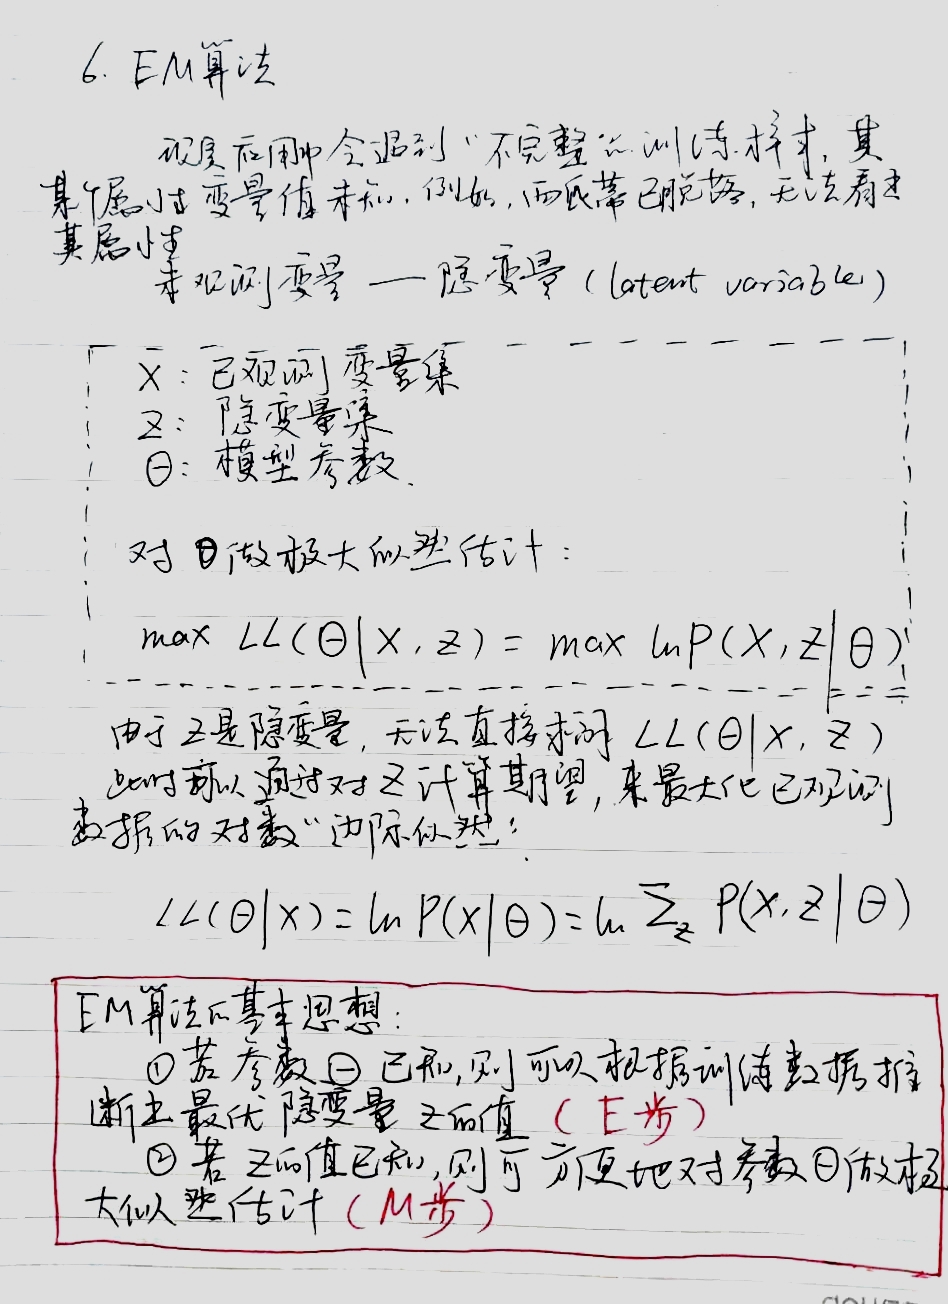 6. EM算法
现实应用中会遇到“不完整”的训练样本, 其
某个属性变量值未知. 例如, 西瓜蒂已脱落, 无法看出
其属性
未观测变量 — 隐变量 (latent variable)
X: 已观测变量集
Z: 隐变量集
Θ: 模型参数.
对Θ做极大似然估计:
max LL(Θ|X, Z) = max ln P(X, Z|Θ)
由于Z是隐变量, 无法直接求解 LL(Θ|X, Z)
此时可以通过对Z计算期望, 来最大化已观测
数据的对数“边际似然”:
LL(Θ|X) = ln P(X|Θ) = ln Σ_Z P(X, Z|Θ)
EM算法的基本思想:
① 若参数Θ已知, 则可以根据训练数据推
断出最优隐变量Z的值 (E步)
② 若Z的值已知, 则可方便地对参数Θ做极
大似然估计 (M步)